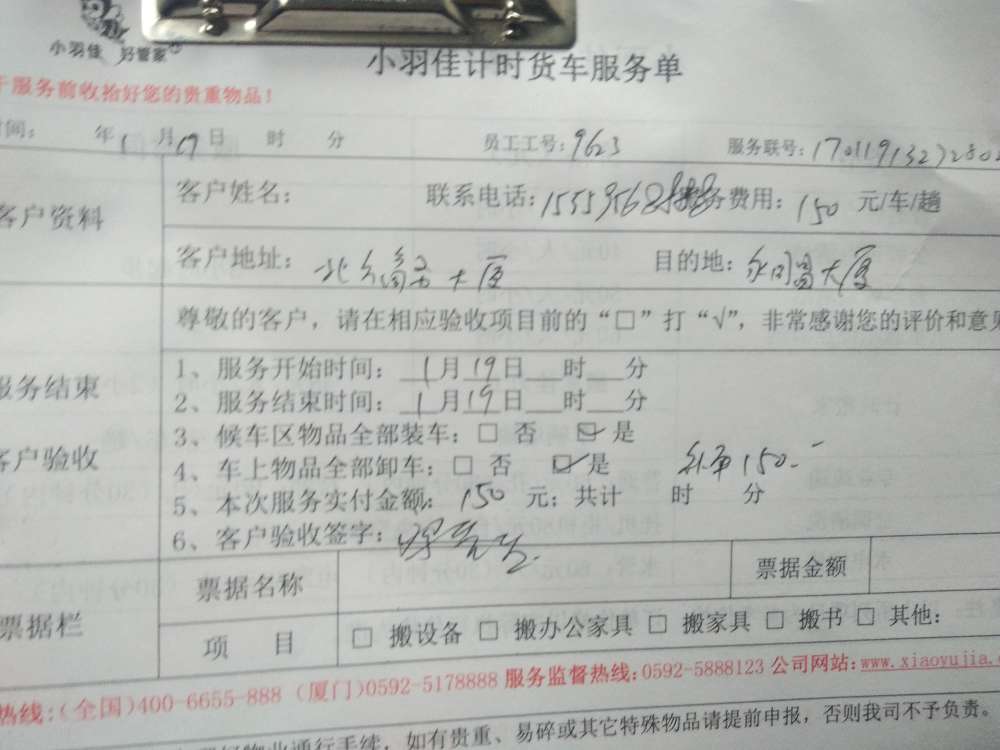 小羽佳 好管家®
小羽佳计时货车服务单
于服务前收拾好您的贵重物品!
时间: 年1月19日 时 分 员工工号: 9623 服务联号: 170119132728
客户资料
客户姓名: 联系电话: 15559568888 服务费用: 150 元/车/趟
客户地址: 大厦 目的地: 永同昌大厦
尊敬的客户，请在相应验收项目前的“□”打“√”，非常感谢您的评价和意见
服务结束
客户验收
1、服务开始时间: 1月19日 时 分
2、服务结束时间: 1月19日 时 分
3、候车区物品全部装车: □ 否 ☑ 是
4、车上物品全部卸车: □ 否 ☑ 是 150.-
5、本次服务实付金额: 150 元; 共计 时 分
6、客户验收签字:
票据栏
票据名称 票据金额
项 目 □ 搬设备 □ 搬办公家具 □ 搬家具 □ 搬书 □ 其他:
热线:(全国)400-6655-888 (厦门)0592-5178888 服务监督热线:0592-5888123 公司网站:www.xiaoyujia.c
物业通行手续，如有贵重、易碎或其它特殊物品请提前申报，否则我司不予负责。